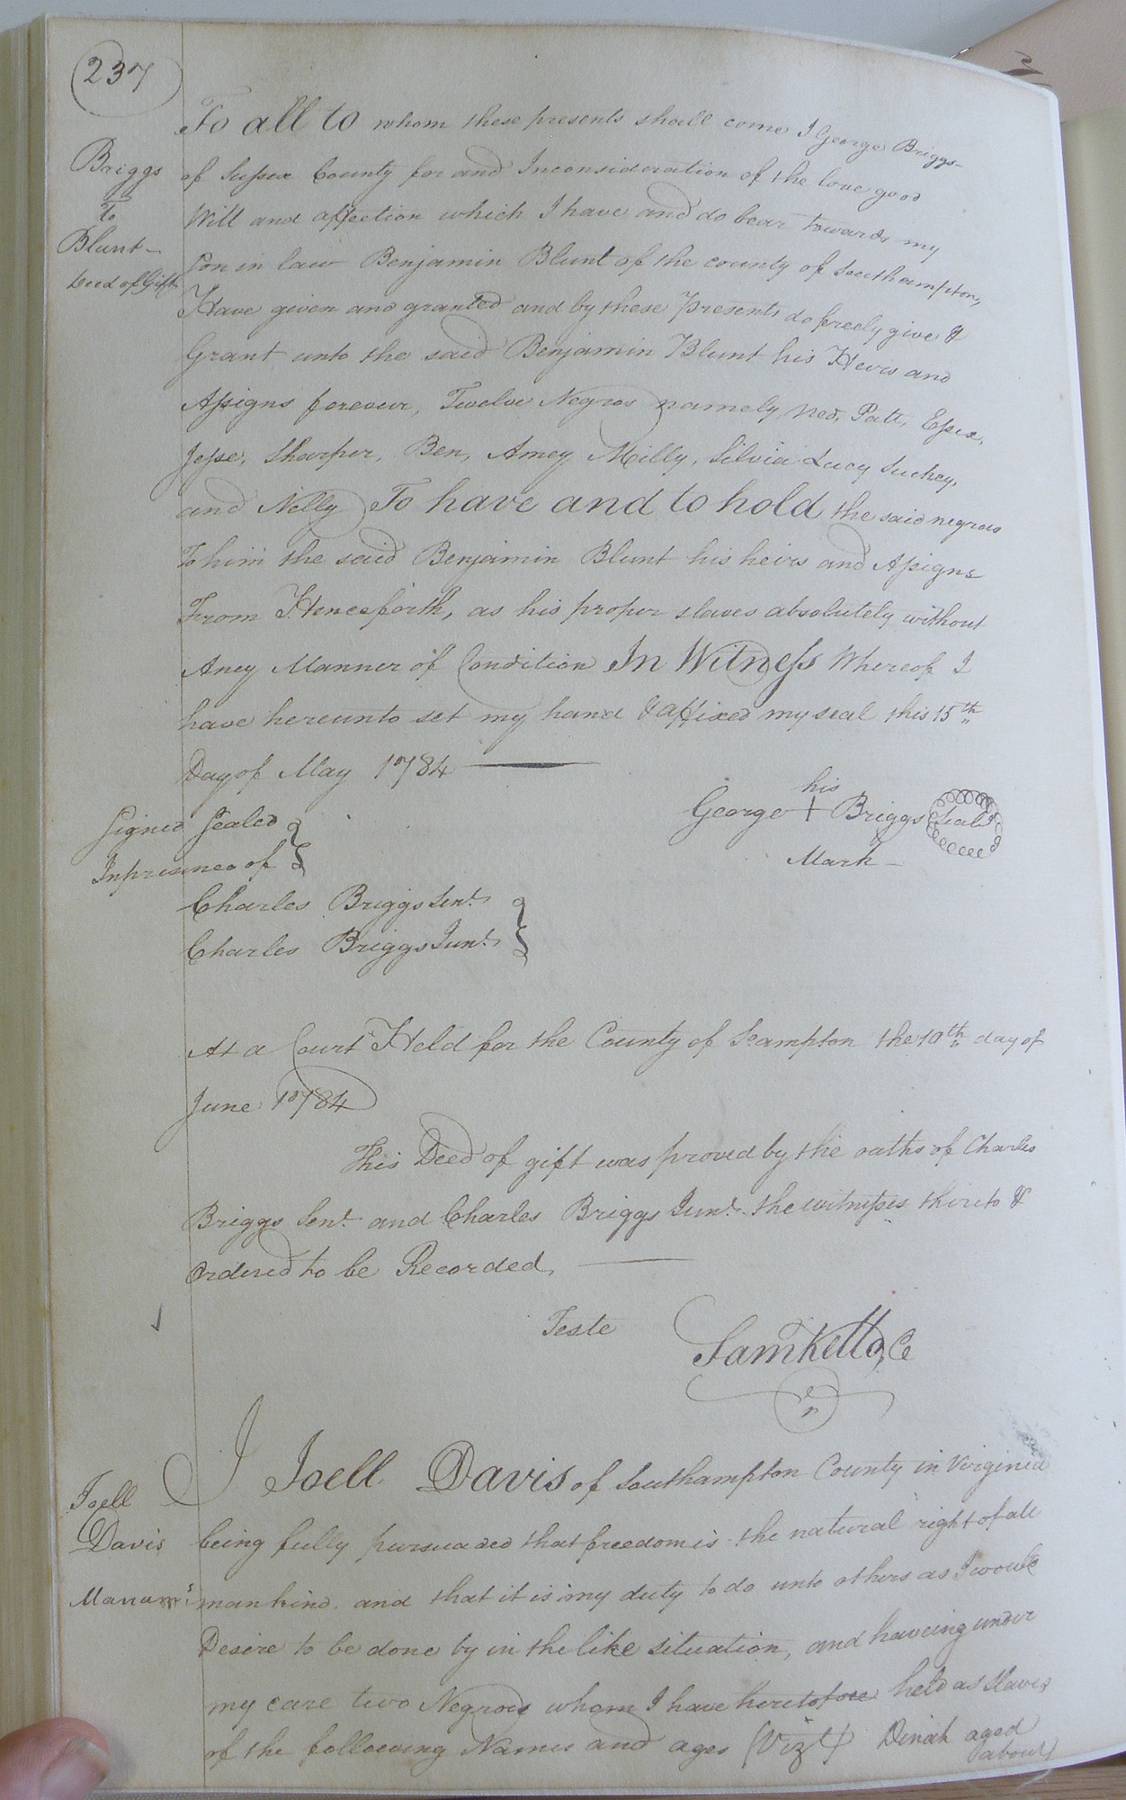 237
To all to whom these presents shall come I George Briggs
of Sussex County for and Inconsideration of the love good
Will and affection which I have and do bear towards my
Son in law Benjamin Blunt of the county of Southampton,
Have given and granted and by these Presents do freely give &
Grant unto the said Benjamin Blunt his Heirs and
Assigns forever, Twelve Negros namely, Ned, Patt, Essex,
Jesse, Sharper, Ben, Amey Milly, Silvia Lucy Suckey,
and Nelly To have and to hold the said negros
To him the said Benjamin Blunt his heirs and Assigns
From Henceforth, as his proper slaves absolutely without
Aney Manner of Condition In Witness Whereof I
have hereunto set my hand & affixed my seal this 15th
Day of May 1784
Briggs
To
Blunt
Deed of Gift
Signed Sealed
Inpresence of
Charles Briggs Senr.
Charles Briggs Junr.
his
George + Briggs Seal
Mark
At a Court Held for the County of So.ampton the 10th day of
June 1784
This Deed of gift was proved by the oaths of Charles
Briggs Senr. and Charles Briggs Junr. the witnesses thereto &
Ordered to be Recorded,
Teste
Sam Kello, C
r
Joell
Davis
Manums
I Joell Davis of Southampton County in Virginia
being fully pursuaded that freedom is the natural right of all
mankind. and that it is my duty to do unto others as I would
Desire to be done by in the like situation, and haveing under
my care two Negroes whom I have heretofore held as slaves
of the following Names and ages (Vizt) Dinah aged
about